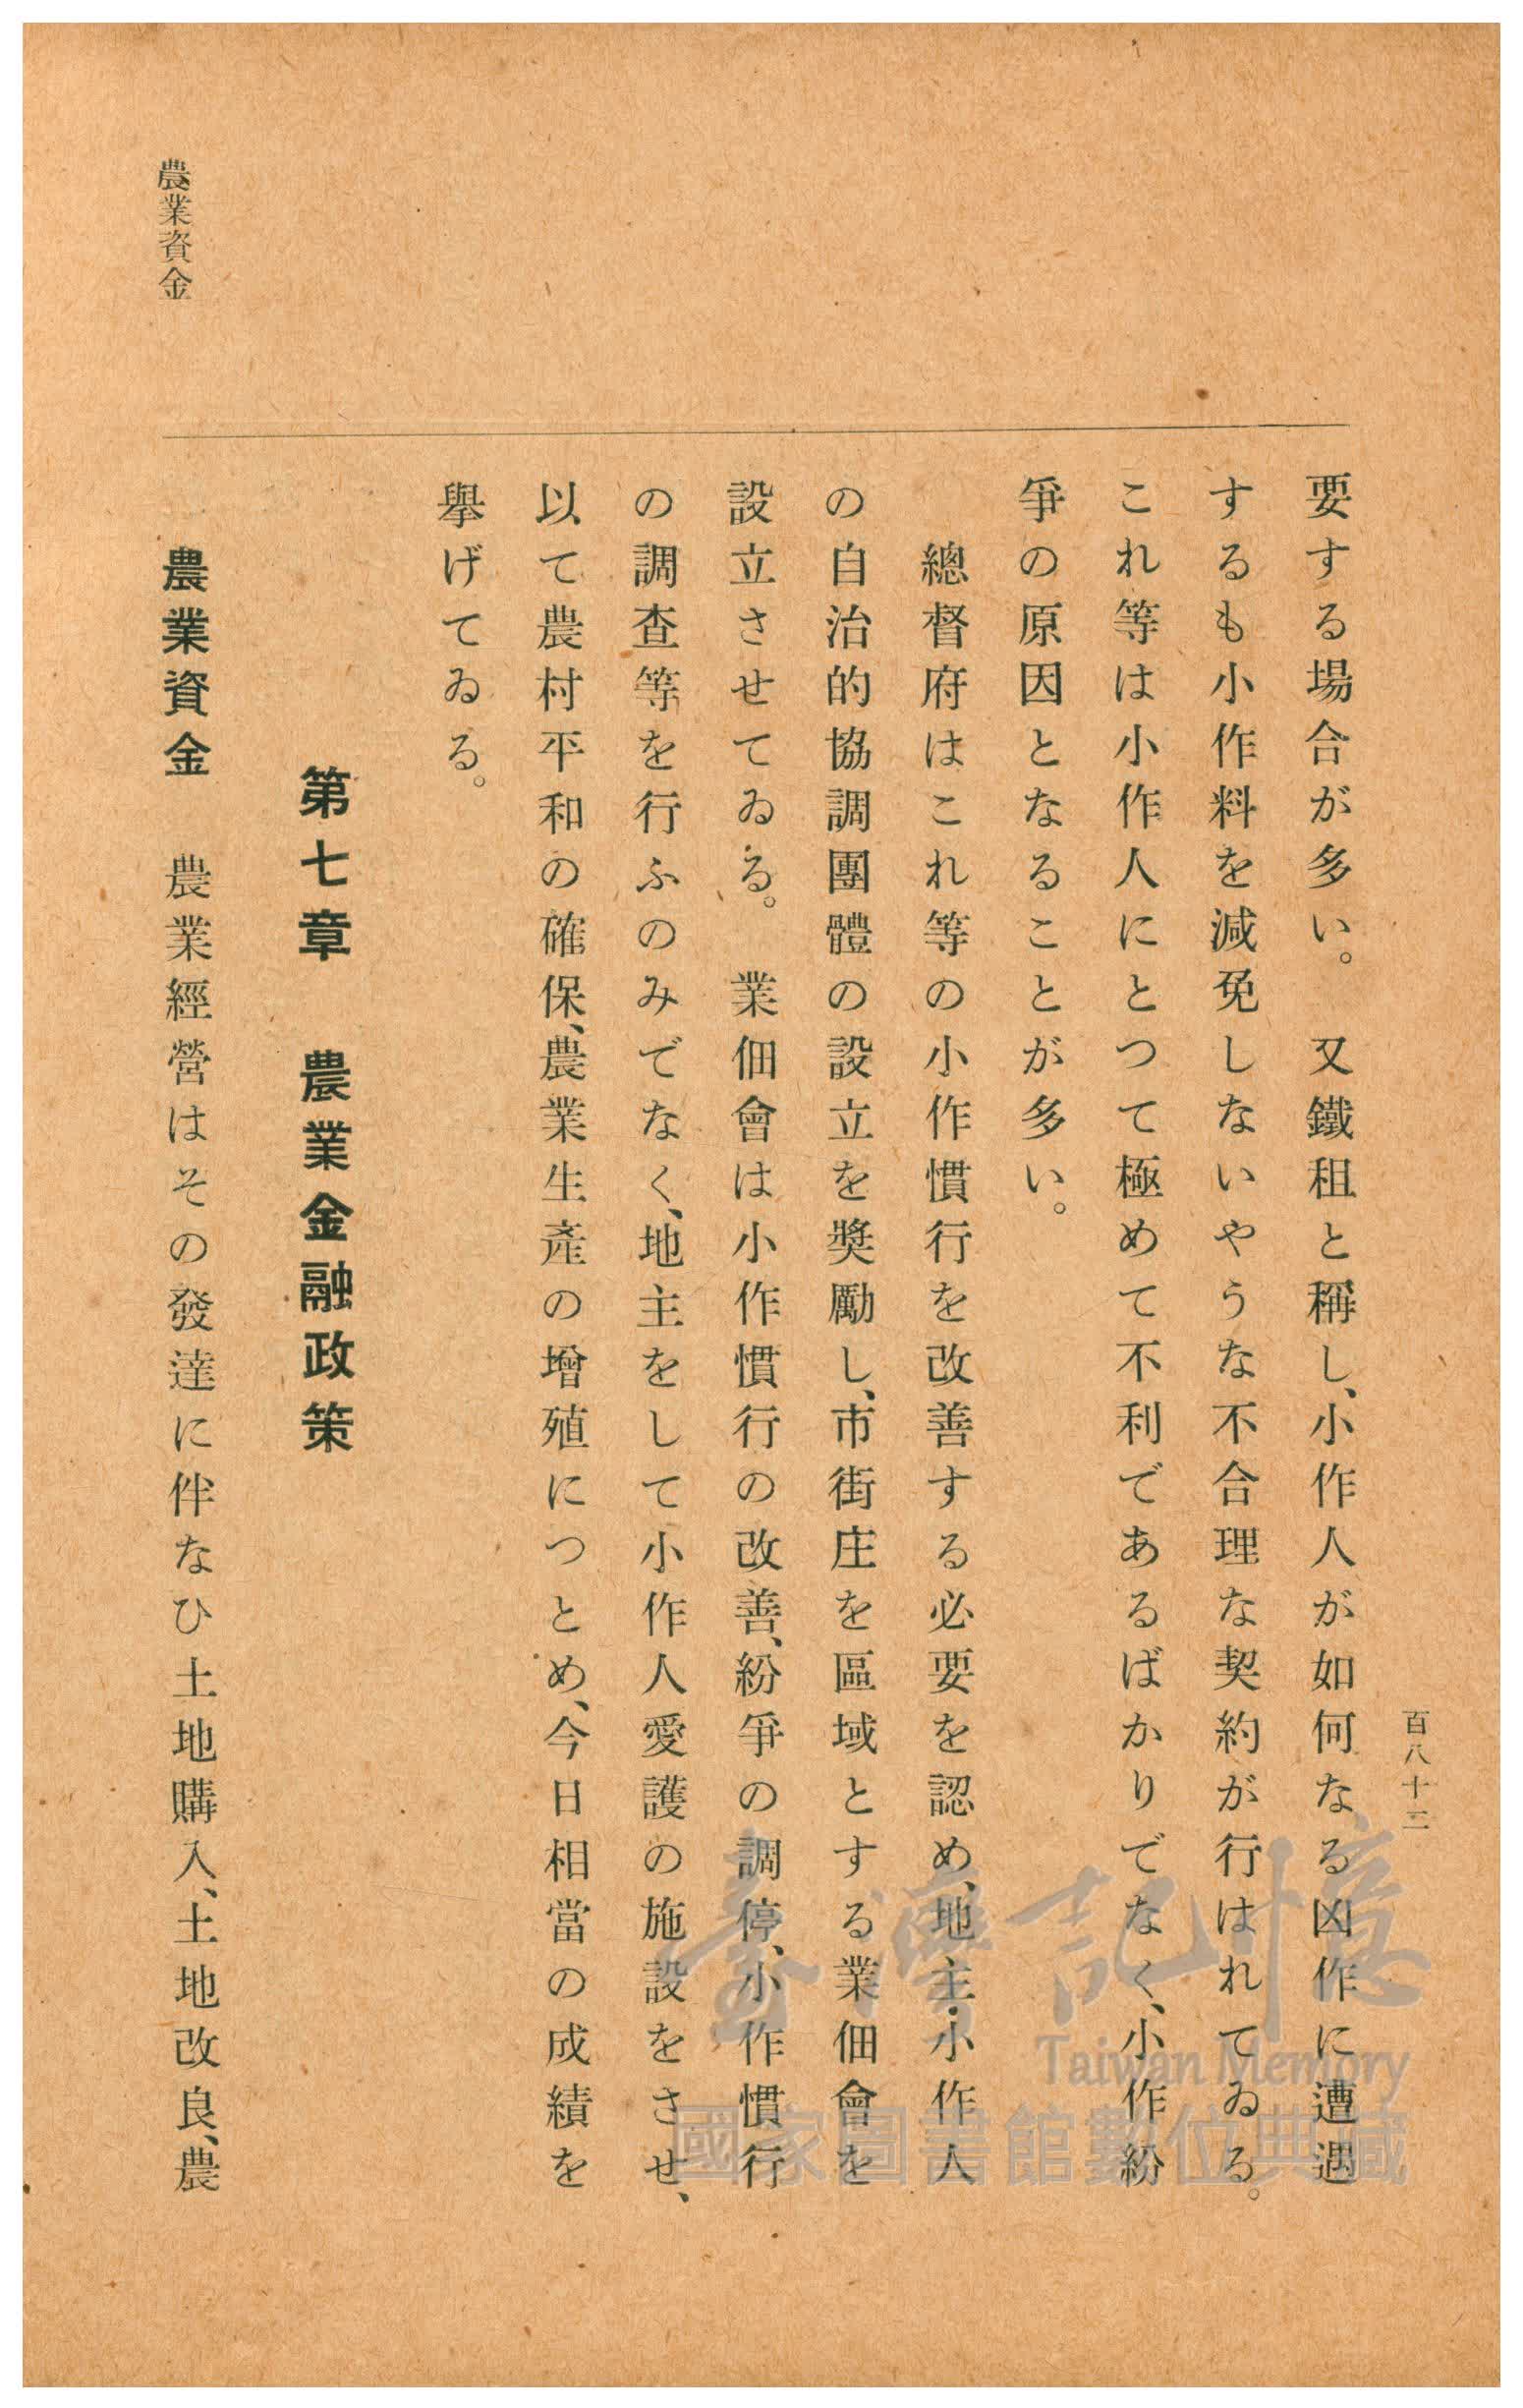 百八十二
要する場合が多い。又鐵租と稱し、小作人が如何なる凶作に遭遇
するも小作料を減免しないやうな不合理な契約が行はれてゐる。
これ等は小作人にとつて極めて不利であるばかりでなく、小作紛
爭の原因となることが多い。
總督府はこれ等の小作慣行を改善する必要を認め、地主・小作人
の自治的協調團體の設立を奬勵し、市街庄を區域とする業佃會を
設立させてゐる。業佃會は小作慣行の改善、紛爭の調停、小作慣行
の調査等を行ふのみでなく、地主をして小作人愛護の施設をさせ、
以て農村平和の確保、農業生產の增殖につとめ、今日相當の成績を
擧げてゐる。
第七章 農業金融政策
農業資金
農業資金 農業經營はその發達に伴なひ土地購入、土地改良、農
臺灣記憶
Taiwan Memory
國家圖書館數位典藏